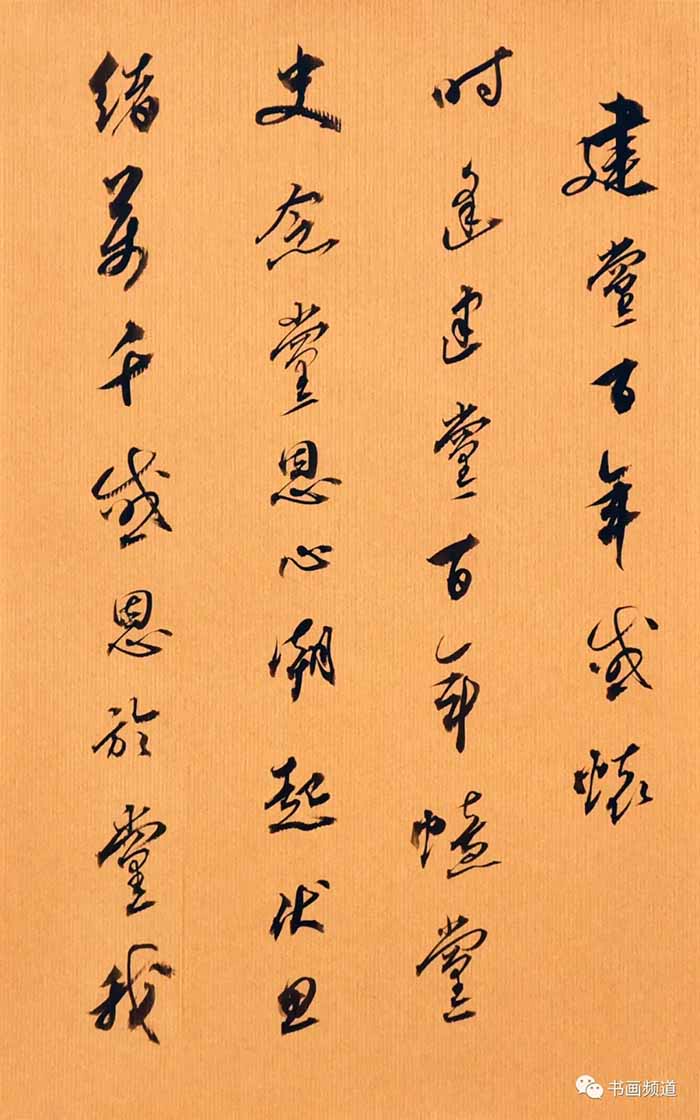 建党百年感怀
时逢建党百年忆党
史念党恩心潮起伏思
绪万千感恩於党我
书画频道